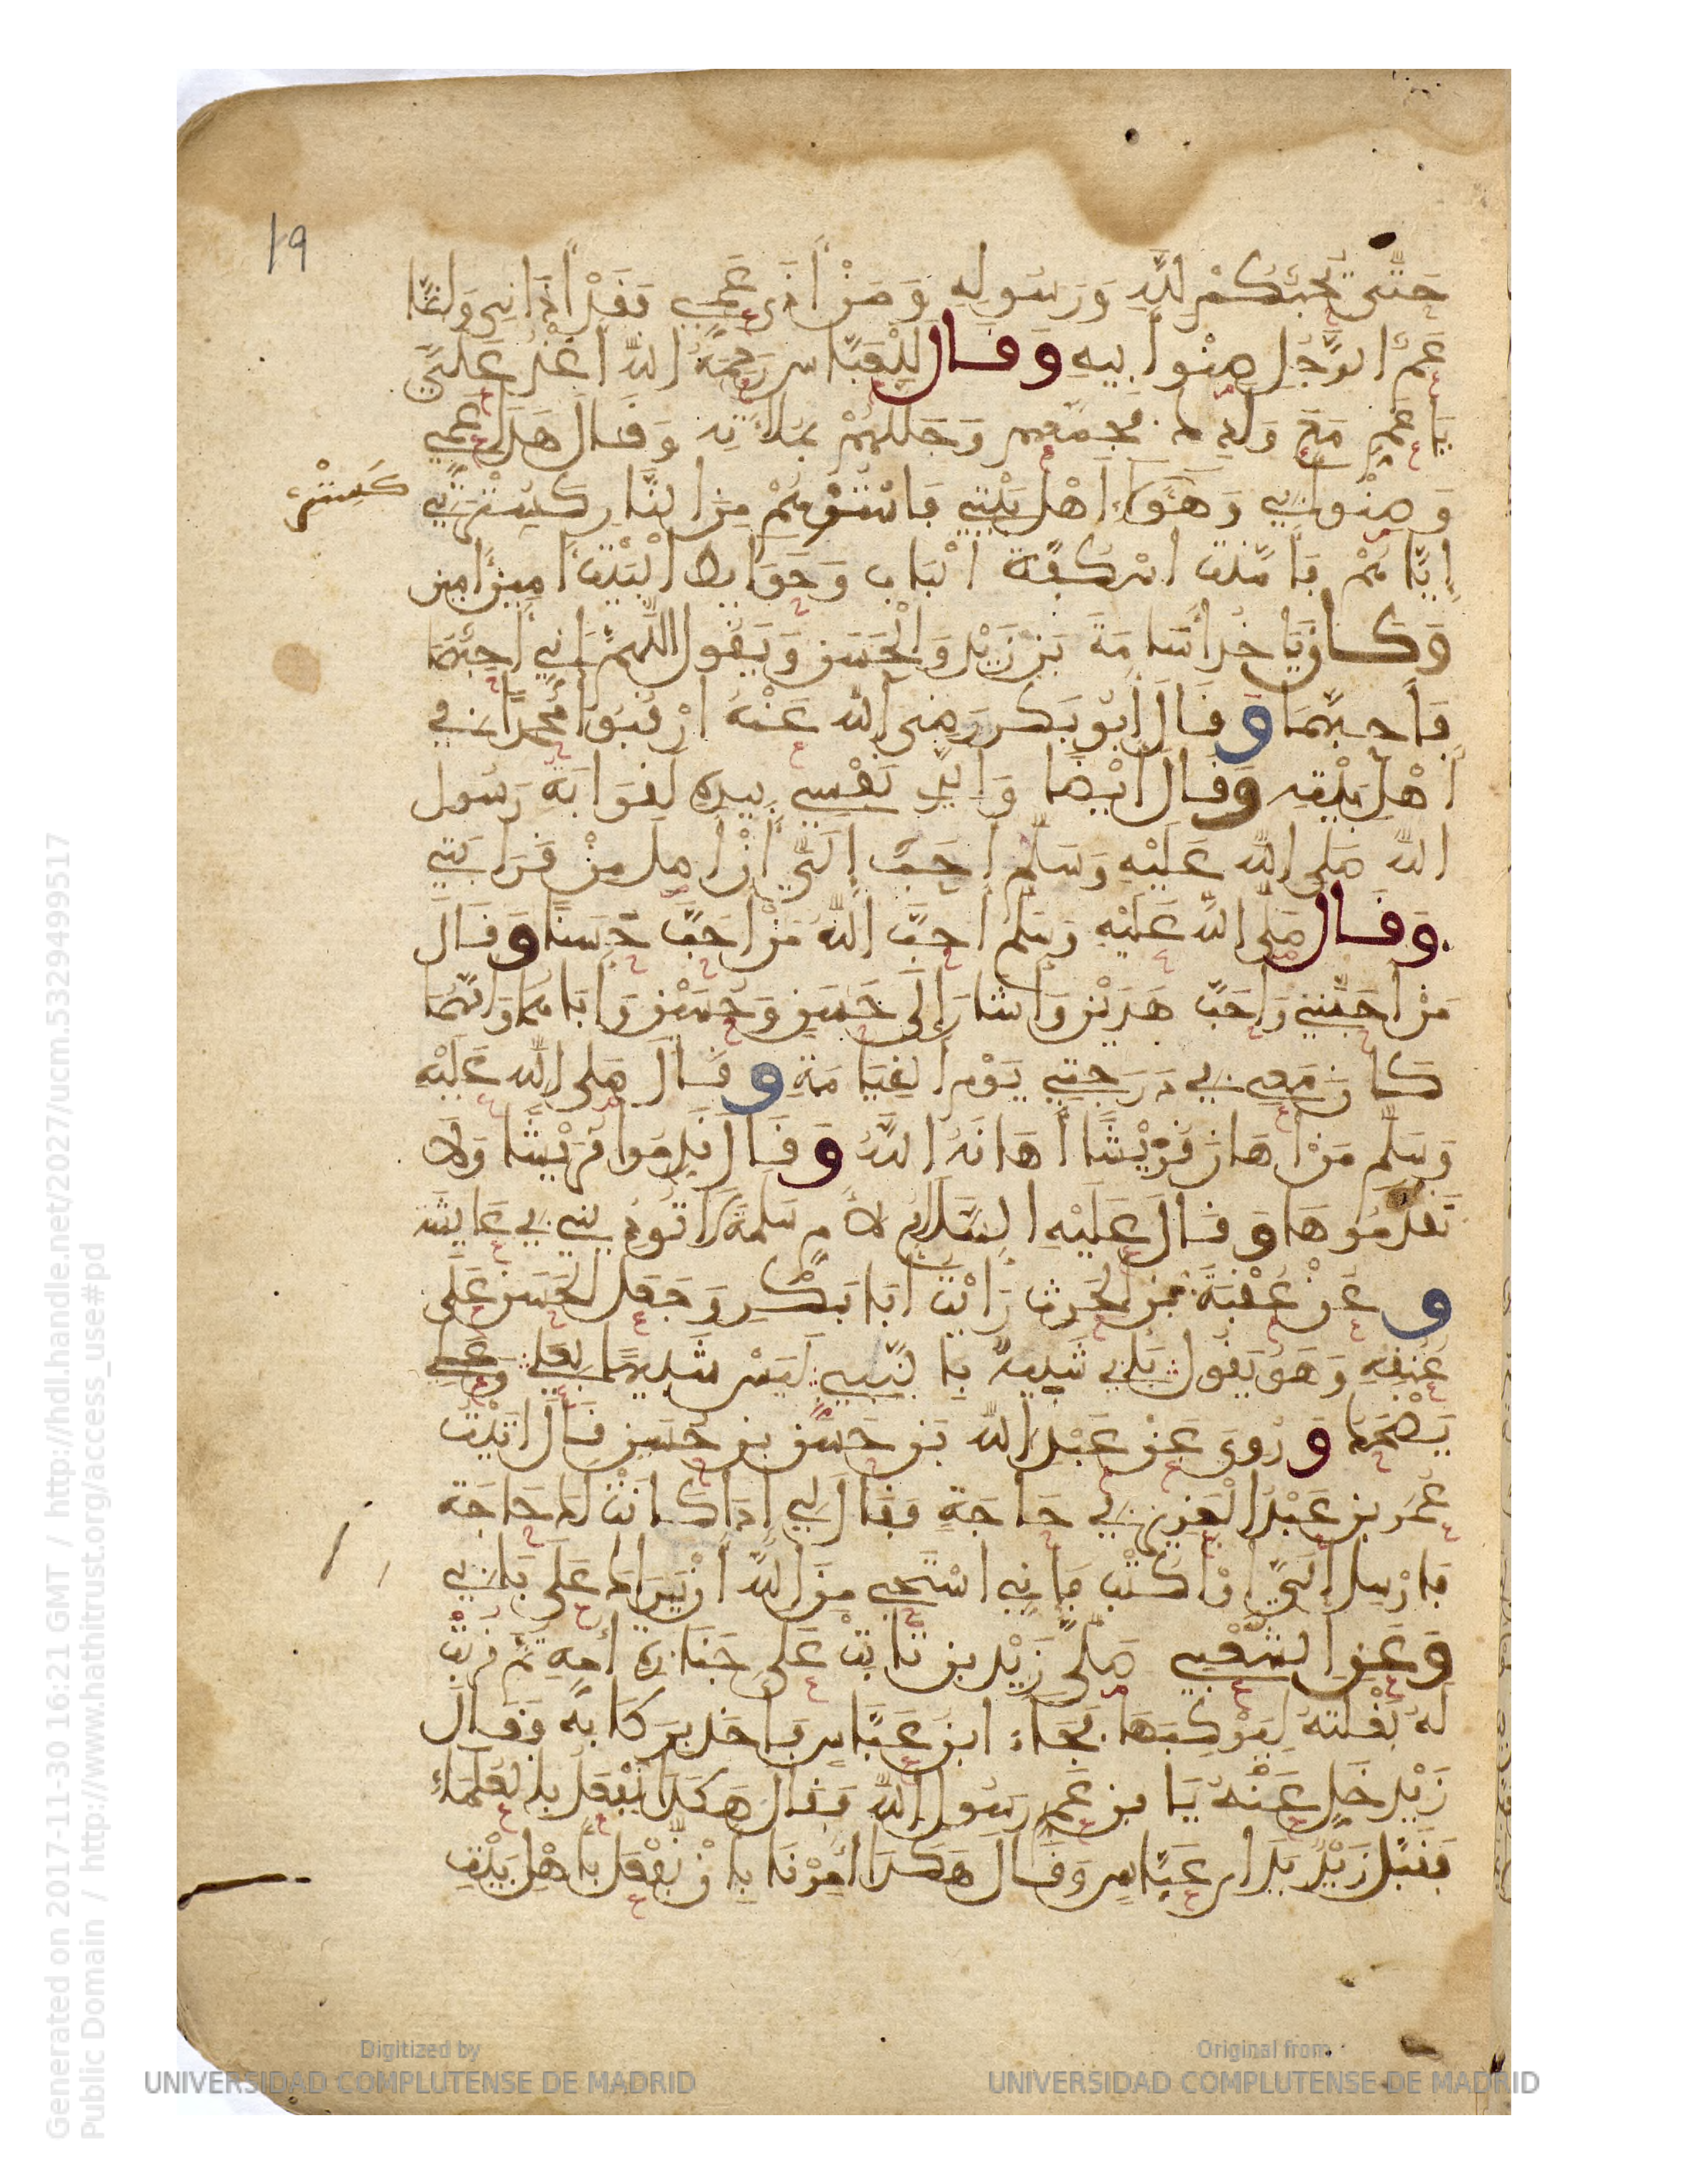 19
حَتَّى يُحِبَّكُمْ لِلّهِ وَرَسُولِهِ وَمَنْ أَذَى عَمِّي فَقَدْ أَذَانِي وَإِنَّمَا
عَمُّ الرَّجُلِ صِنْوُ أَبِيهِ وَقَالَ لِلْعَبَّاسِ رَحِمَهُ اللّهُ اغْدُ عَلَيَّ
يَا عَمِّ مَعَ وَلَدِكَ فَجَمَعَهُمْ وَجَلَّلَهُمْ بِمُلَاءَتِهِ وَقَالَ هَذَا عَمِّي
وَصِنْوُ أَبِي وَهَؤُلَاءِ أَهْلُ بَيْتِي فَاسْتُرْهُمْ مِنَ النَّارِ كَسِتْرِي
كَسِتْرِي
إِيَّاهُمْ فَأَمَّنَتْ أُسْكُفَّةُ الْبَابِ وَحَوَائِطُ الْبَيْتِ آمِينَ آمِينَ
وَكَانَ يَأْخُذُ أُسَامَةَ بْنَ زَيْدٍ وَالْحَسَنَ وَيَقُولُ اللَّهُمَّ إِنِّي أُحِبُّهُمَا
فَأَحِبَّهُمَا وَقَالَ أَبُو بَكْرٍ رَضِيَ اللّهُ عَنْهُ ارْقُبُوا مُحَمَّدًا فِي
أَهْلِ بَيْتِهِ وَقَالَ أَيْضًا وَالَّذِي نَفْسِي بِيَدِهِ لَقَرَابَةُ رَسُولِ
اللّهِ صَلَّى اللّهُ عَلَيْهِ وَسَلَّمَ أَحَبُّ إِلَيَّ أَنْ أَصِلَ مِنْ قَرَابَتِي
وَقَالَ صَلَّى اللّهُ عَلَيْهِ وَسَلَّمَ أَحَبَّ اللّهُ مَنْ أَحَبَّ حَسَنًا وَقَالَ
مَنْ أَحَبَّنِي وَأَحَبَّ هَذَيْنِ وَأَشَارَ إِلَى حَسَنٍ وَحُسَيْنٍ وَأَبَاهُمَا وَأُمَّهُمَا
كَانَ مَعِي فِي دَرَجَتِي يَوْمَ الْقِيَامَةِ وَقَالَ صَلَّى اللّهُ عَلَيْهِ
وَسَلَّمَ مَنْ أَهَانَ قُرَيْشًا أَهَانَهُ اللّهُ وَقَالَ قَدِّمُوا قُرَيْشًا وَلَا
تَقَدَّمُوهَا وَقَالَ عَلَيْهِ السَّلَامُ لِأُمِّ سَلَمَةَ لَا تُؤْذِينِي فِي عَائِشَةَ
وَعَنْ عُقْبَةَ بْنِ الْحَرِثِ رَأَيْتُ أَبَا بَكْرٍ وَجَعَلَ الْحَسَنَ عَلَى
عُنُقِهِ وَهُوَ يَقُولُ بِأَبِي شَبِيهٌ بِالنَّبِي لَيْسَ شَبِيهًا بِعَلِي وَعَلِي
يَضْحَكُ وَرُوِيَ عَنْ عَبْدِ اللّهِ بْنِ حَسَنِ بْنِ حُسَيْنٍ قَالَ أَتَيْتُ
عُمَرَ بْنَ عَبْدِ الْعَزِيزِ فِي حَاجَةٍ فَقَالَ لِي إِذَا كَانَتْ لَكَ حَاجَةٌ
فَأَرْسِلْ إِلَيَّ أَوْ اكْتُبْ فَإِنِّي أَسْتَحْيِي مِنَ اللّهِ أَنْ يَرَاكَ عَلَى بَابِي
وَعَنِ الشَّعْبِي صَلَّى زَيْدُ بْنُ ثَابِتٍ عَلَى جَنَازَةِ أُمِّهِ ثُمَّ قُرِّبَتْ
لَهُ بَغْلَتُهُ لِيَرْكَبَهَا فَجَاءَ ابْنُ عَبَّاسٍ فَأَخَذَ بِرِكَابِهِ فَقَالَ
زَيْدٌ خَلِّ عَنْهُ يَا بْنَ عَمِّ رَسُولِ اللّهِ فَقَالَ هَكَذَا نَفْعَلُ بِالْعُلَمَاءِ
فَقَبَّلَ زَيْدٌ يَدَ ابْنِ عَبَّاسٍ وَقَالَ هَكَذَا أُمِرْنَا بِأَنْ نَفْعَلَ بِأَهْلِ بَيْتِ
Digitized by
UNIVERSIDAD COMPLUTENSE DE MADRID
Original from
UNIVERSIDAD COMPLUTENSE DE MADRID
Generated on 2017-11-30 16:21 GMT / http://hdl.handle.net/2027/ucm.5329499517
Public Domain / http://www.hathitrust.org/access_use#pd